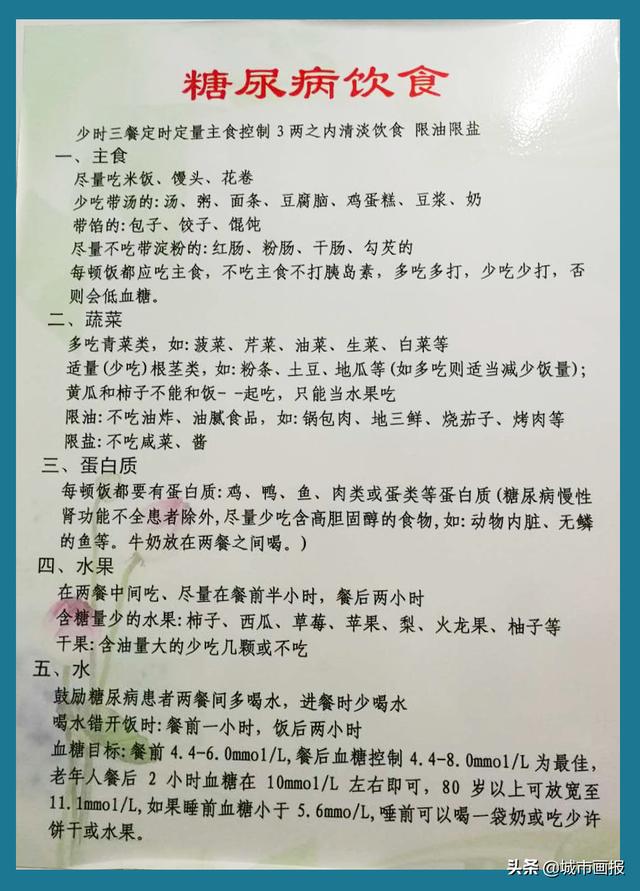 糖尿病饮食
少时三餐定时定量主食控制3两之内清淡饮食 限油限盐
一、主食
尽量吃米饭、馒头、花卷
少吃带汤的:汤、粥、面条、豆腐脑、鸡蛋糕、豆浆、奶
带馅的:包子、饺子、馄饨
尽量不吃带淀粉的:红肠、粉肠、干肠、勾芡的
每顿饭都应吃主食，不吃主食不打胰岛素，多吃多打，少吃少打，否
则会低血糖。
二、蔬菜
多吃青菜类，如:菠菜、芹菜、油菜、生菜、白菜等
适量(少吃)根茎类，如:粉条、土豆、地瓜等(如多吃则适当减少饭量)；
黄瓜和柿子不能和饭--起吃，只能当水果吃
限油:不吃油炸、油腻食品，如:锅包肉、地三鲜、烧茄子、烤肉等
限盐:不吃咸菜、酱
三、蛋白质
每顿饭都要有蛋白质:鸡、鸭、鱼、肉类或蛋类等蛋白质(糖尿病慢性
肾功能不全患者除外,尽量少吃含高胆固醇的食物,如:动物内脏、无鳞
的鱼等。牛奶放在两餐之间喝。)
四、水果
在两餐中间吃、尽量在餐前半小时，餐后两小时
含糖量少的水果:柿子、西瓜、草莓、苹果、梨、火龙果、柚子等
干果:含油量大的少吃几颗或不吃
五、水
鼓励糖尿病患者两餐间多喝水，进餐时少喝水
喝水错开饭时:餐前一小时，饭后两小时
血糖目标:餐前4.4-6.0mmol/L,餐后血糖控制4.4-8.0mmol/L为最佳，
老年人餐后 2 小时血糖在 10mmol/L 左右即可，80 岁以上可放宽至
11.1mmol/L,如果睡前血糖小于5.6mmo/L,唾前可以喝一袋奶或吃少许
饼干或水果。
头条 @城市画报